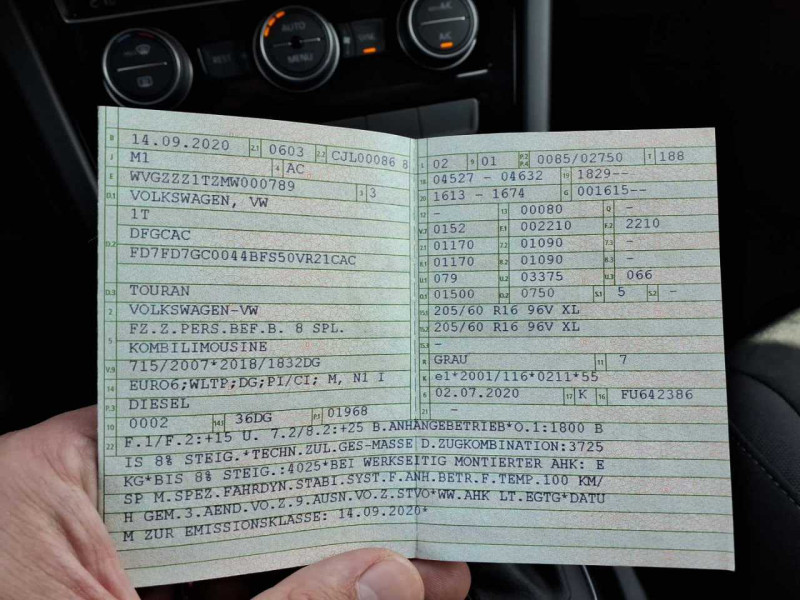 B 14.09.2020 2.1 0603 2.2 CJL00086 8
J M1 4 AC
E WVGZZZ1TZMW000789 3 3
D.1 VOLKSWAGEN, VW
1T
D.2 DFGCAC
FD7FD7GC0044BFS50VR21CAC
D.3 TOURAN
2 VOLKSWAGEN-VW
5 FZ.Z.PERS.BEF.B. 8 SPL.
KOMBILIMOUSINE
V.9 715/2007*2018/1832DG
14 EURO6;WLTP;DG;PI/CI; M, N1 I
P.3 DIESEL
10 0002 14.1 36DG P.1 01968
L 02 9 01 P.2 P.4 0085/02750 T 188
18 04527 - 04632 19 1829--
20 1613 - 1674 G 001615--
12 - 13 00080 Q -
V.7 0152 F.1 002210 F.2 2210
7.1 01170 7.2 01090 7.3 -
8.1 01170 8.2 01090 8.3 -
U.1 079 U.2 03375 U.3 066
O.1 01500 O.2 0750 S.1 5 S.2 -
15.1 205/60 R16 96V XL
15.2 205/60 R16 96V XL
15.3 -
R GRAU 11 7
K e1*2001/116*0211*55
6 02.07.2020 17 K 16 FU642386
21 -
22 F.1/F.2:+15 U. 7.2/8.2:+25 B.ANHÄNGEBETRIEB*O.1:1800 B
IS 8% STEIG.*TECHN.ZUL.GES-MASSE D.ZUGKOMBINATION:3725
KG*BIS 8% STEIG.:4025*BEI WERKSEITIG MONTIERTER AHK: E
SP M.SPEZ.FAHRDYN.STABI.SYST.F.ANH.BETR.F.TEMP.100 KM/
H GEM.3.AEND.VO.Z.9.AUSN.VO.Z.STVO*WW.AHK LT.EGTG*DATU
M ZUR EMISSIONSKLASSE: 14.09.2020*
AUTO
MENU
REST
SYNC
A/C